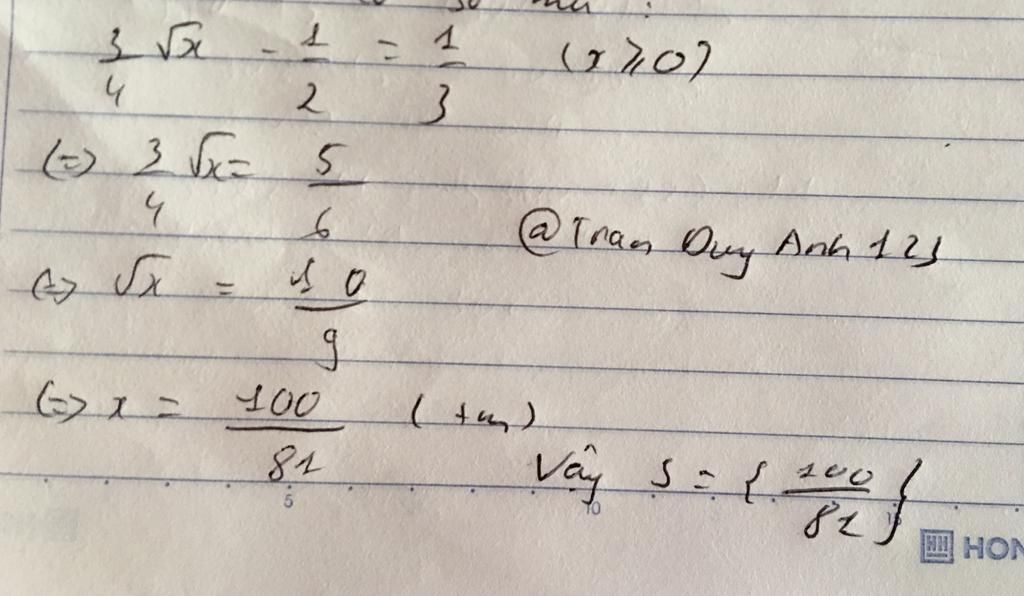 3/4 √x - 1/2 = 1/3 (x ⩾ 0)
(=) 3/4 √x = 5/6
@Tran Duy Anh 123
(=) √x = 10/9
(=) x = 100/81 (tm)
Vậy S = { 100/81 }
5 10 15
HON